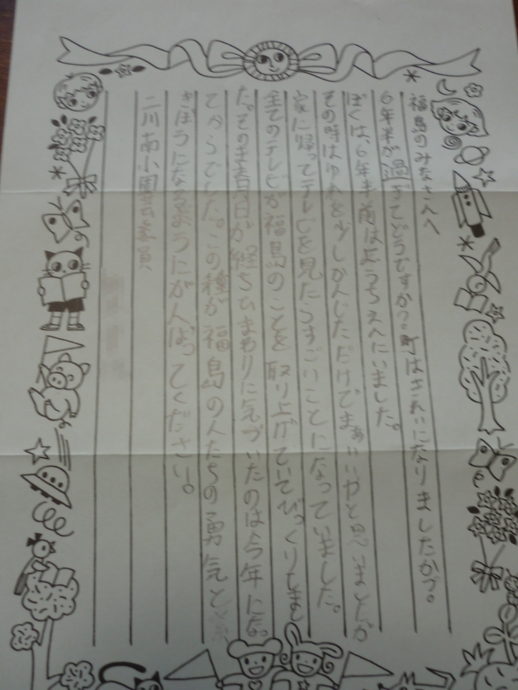 福島のみなさんへ
6年半が過ぎてどうですか？町はきれいになりましたか？。
ぼくは、6年半前はようちえんにいました。
その時はゆれを少しかんじただけでまぁいいかと思いましたが
家に帰ってテレビを見たらすごいことになっていました。
全てのテレビが福島のことを取り上げていてびっくりしまし
た。そのまま月日が経ちひまわりに気づいたのは今年にな
てからでした。この種が福島の人たちの勇気と
きぼうになるようにがんばってください。
二川南小園芸委員